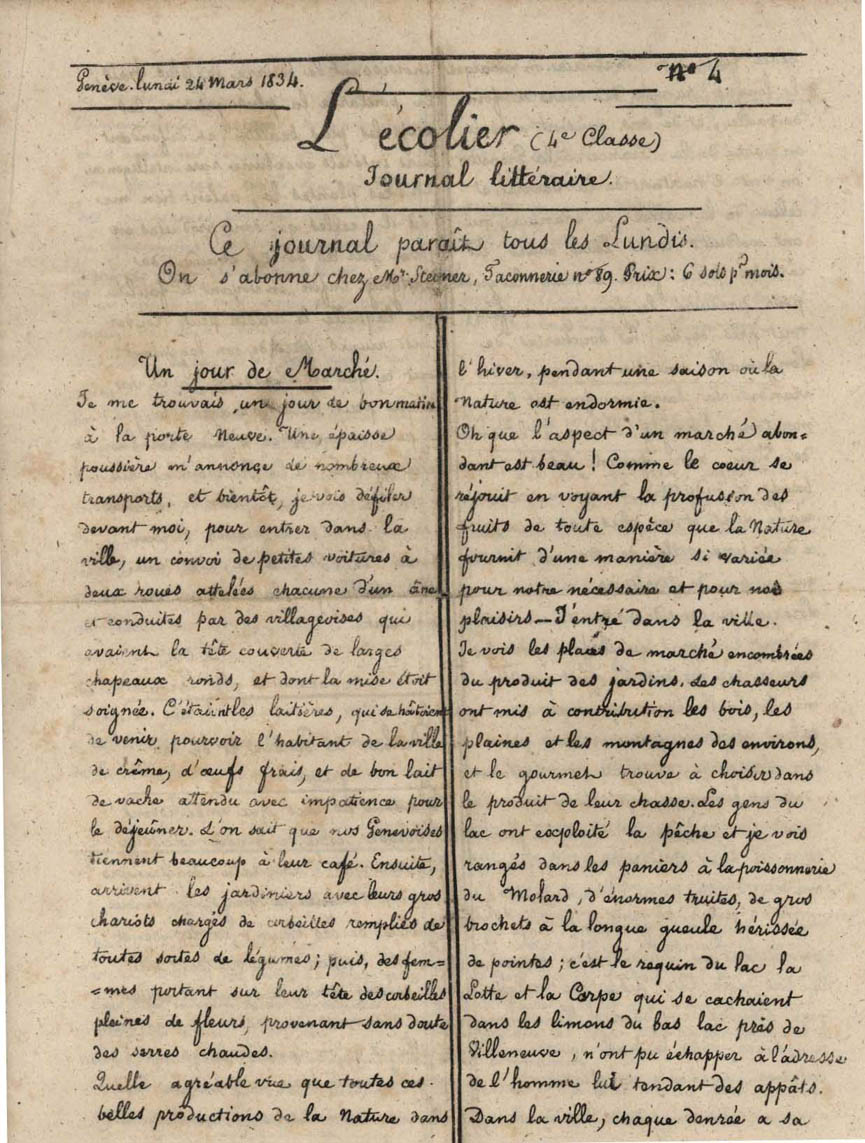 Genève. lundi 24 Mars 1834.
no 4
L'écolier (4e Classe)
Journal littéraire.
Ce journal paraît tous les Lundis.
On s'abonne chez Mr. Steiner, Taconnerie no 89. Prix: 6 sols pr mois.
Un jour de Marché.
Je me trouvais un jour de bon matin
à la porte Neuve. Une épaisse
poussière m'annonça de nombreux
transports, et bientôt, je vois défiler
devant moi, pour entrer dans la
ville, un convoi de petites voitures à
deux roues attelées chacune d'un âne
et conduites par des villageoises qui
avaient la tête couverte de larges
chapeaux ronds, et dont la mise étoit
soignée. C'étaient les laitières, qui se hâtoient
de venir pourvoir l'habitant de la ville
de crême, d'œufs frais, et de bon lait
de vache attendu avec impatience pour
le déjeûner. L'on sait que nos Genevoises
tiennent beaucoup à leur café. Ensuite,
arrivent les jardiniers avec leurs gros
chariots chargés de corbeilles remplies de
toutes sortes de légumes; puis, des fem=
=mes portant sur leur tête des corbeilles
pleines de fleurs, provenant sans doute
des serres chaudes.
Quelle agréable vue que toutes ces
belles productions de la Nature dans
l'hiver, pendant une saison où la
Nature est endormie.
Oh que l'aspect d'un marché abon=
dant est beau! Comme le coeur se
réjouit en voyant la profusion des
fruits de toute espèce que la Nature
fournit d'une manière si variée
pour notre nécessaire et pour nos
plaisirs — J'entre dans la ville.
Je vois les places de marché encombrées
du produit des jardins. Les chasseurs
ont mis à contribution les bois, les
plaines et les montagnes des environs,
et le gourmet trouve à choisir dans
le produit de leur chasse. Les gens du
lac ont exploité la pêche et je vois
rangés dans les paniers à la poissonnerie
du Molard, d'énormes truites, de gros
brochets à la longue gueule hérissée
de pointes; c'est le requin du lac la
Lotte et la Carpe qui se cachaient
dans les limons du bas lac près de
Villeneuve, n'ont pu échapper à l'adresse
de l'homme lui tendant des appâts.
Dans la ville, chaque denrée a sa